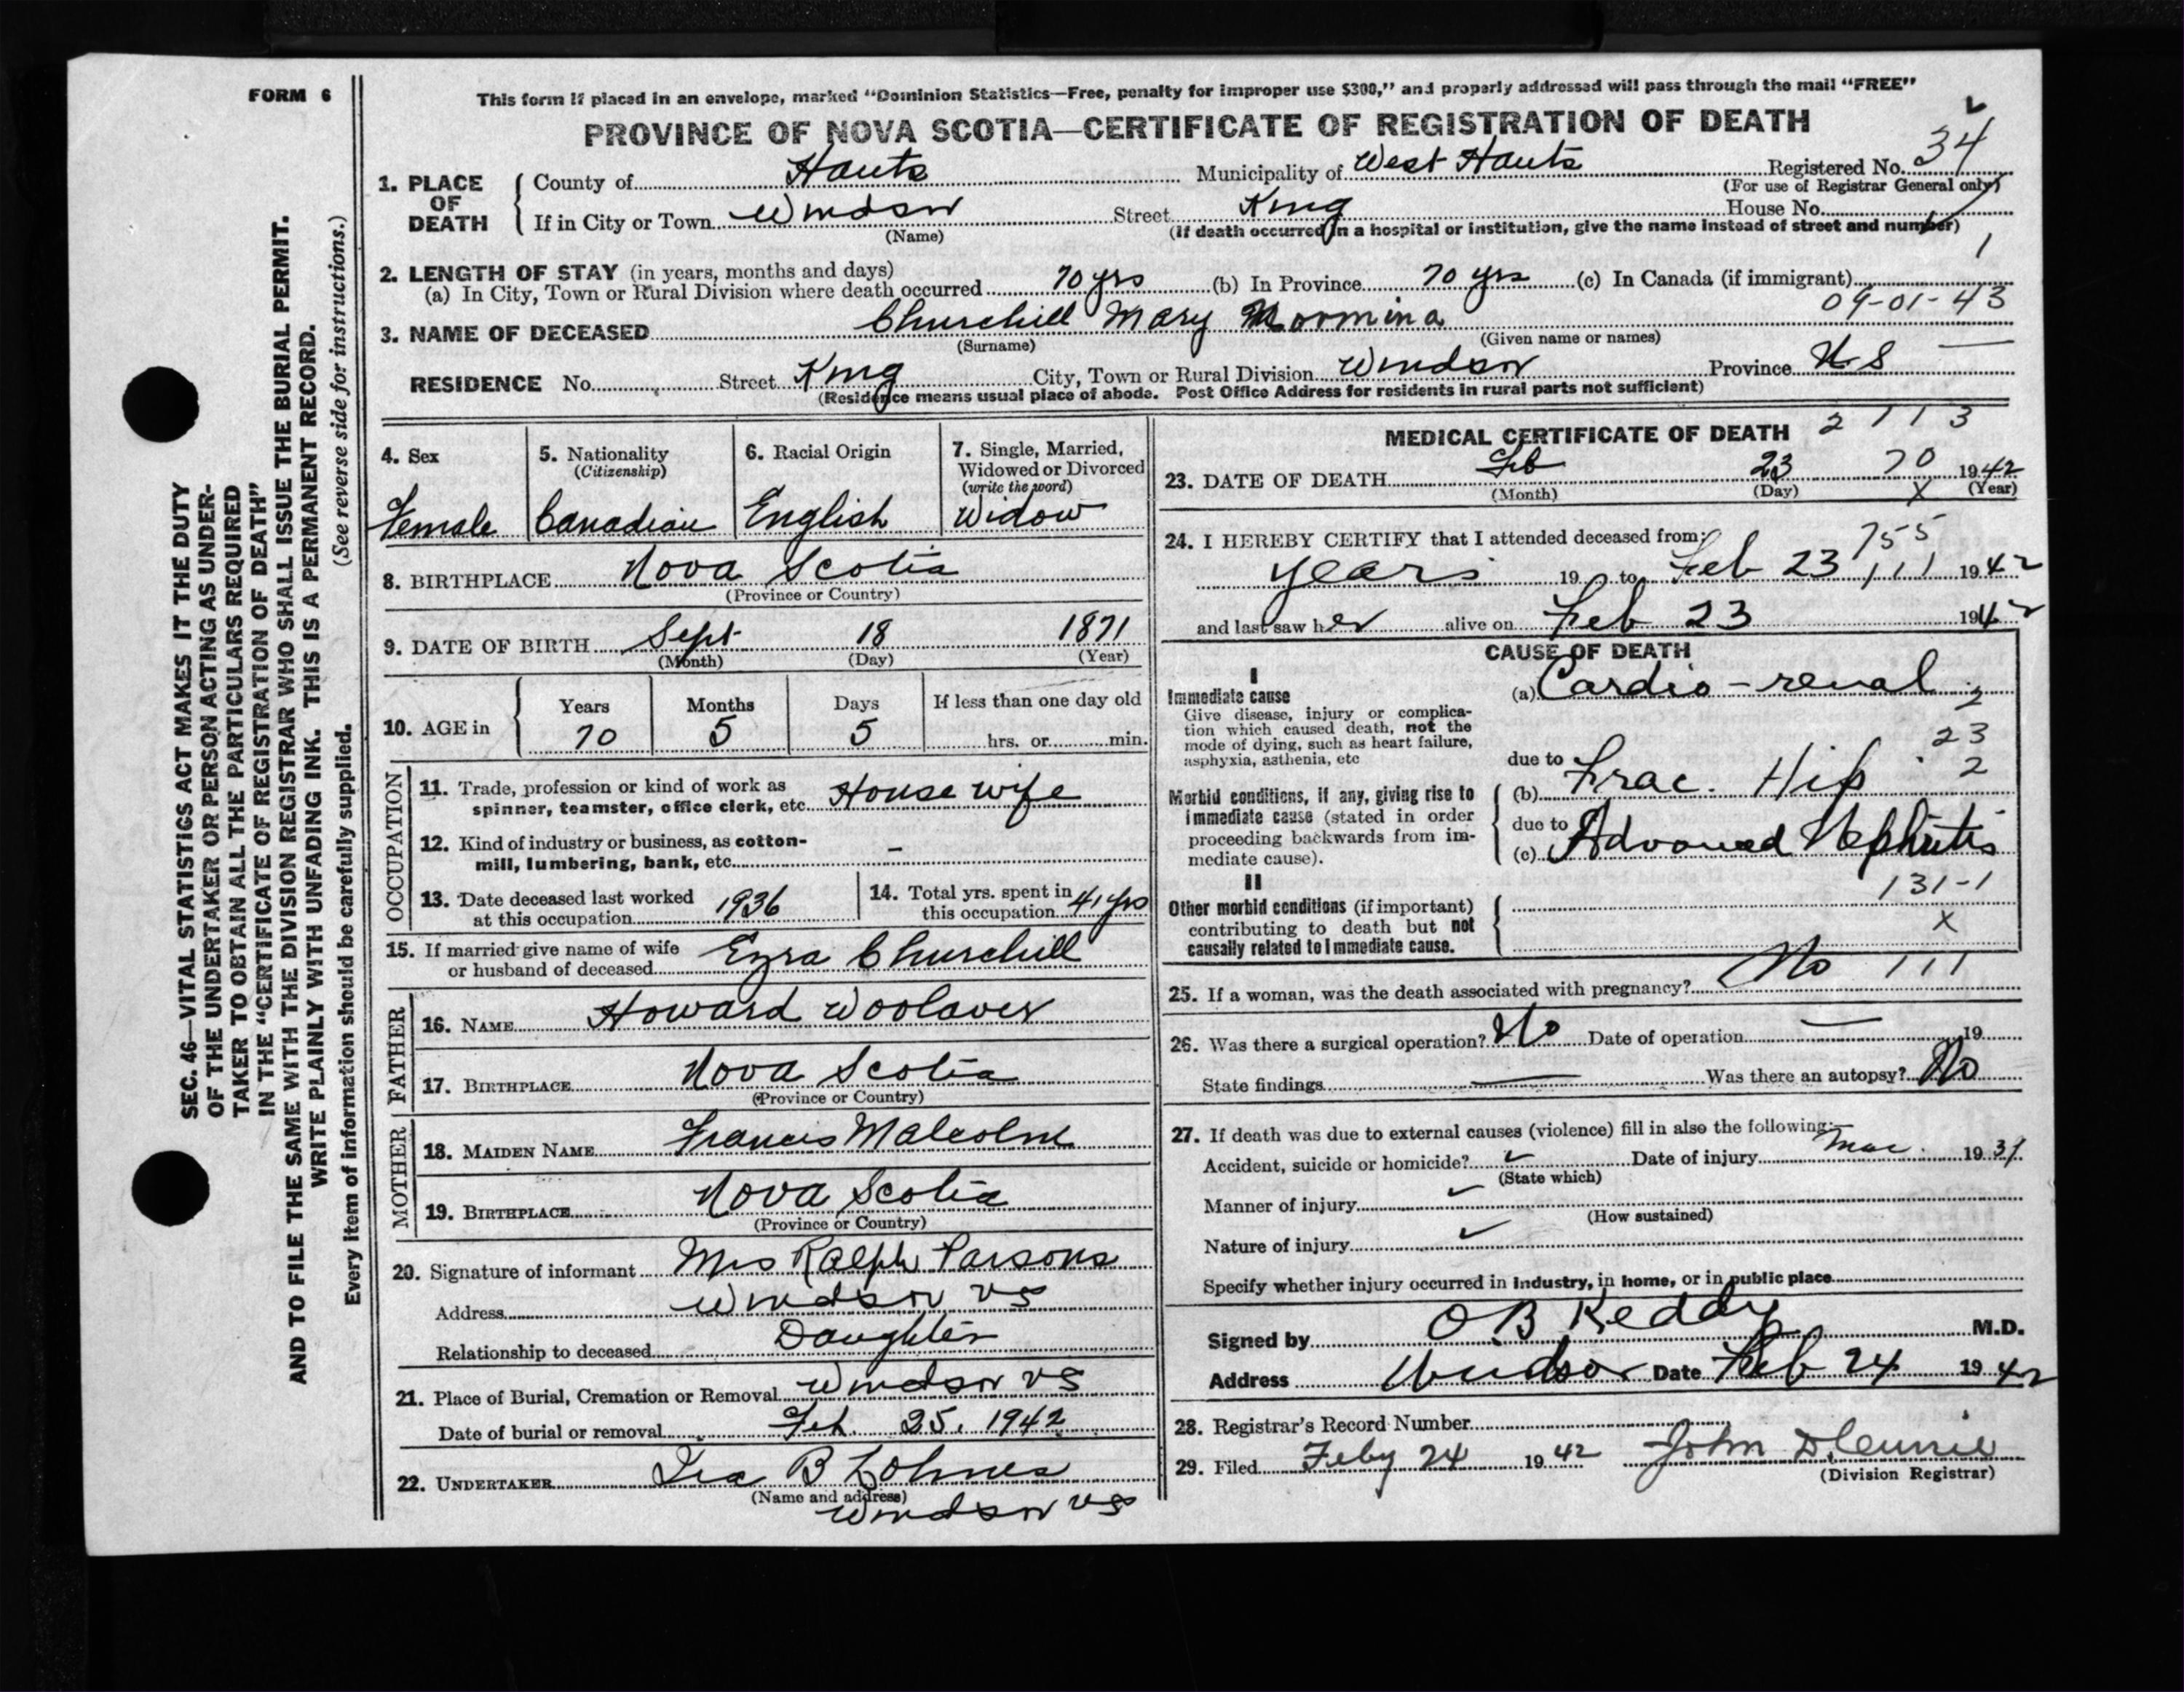 FORM 6
This form if placed in an envelope, marked “Dominion Statistics—Free, penalty for improper use $300,” and properly addressed will pass through the mail “FREE”
PROVINCE OF NOVA SCOTIA—CERTIFICATE OF REGISTRATION OF DEATH
1. PLACE OF DEATH
County of Hants Municipality of West Hants Registered No. 34
(For use of Registrar General only)
If in City or Town Windsor Street King House No.
(Name) (If death occurred in a hospital or institution, give the name instead of street and number)
1
2. LENGTH OF STAY (in years, months and days)
(a) In City, Town or Rural Division where death occurred 70 yrs (b) In Province 70 yrs (c) In Canada (if immigrant)
09-01-43
3. NAME OF DECEASED Churchill Mary Mormina
(Surname) (Given name or names)
RESIDENCE No. Street King City, Town or Rural Division Windsor Province N S
(Residence means usual place of abode. Post Office Address for residents in rural parts not sufficient)
4. Sex
Female
5. Nationality
(Citizenship)
Canadian
6. Racial Origin
English
7. Single, Married,
Widowed or Divorced
(write the word)
Widow
8. BIRTHPLACE Nova Scotia
(Province or Country)
9. DATE OF BIRTH Sept 18 1871
(Month) (Day) (Year)
10. AGE in
Years Months Days If less than one day old
70 5 5 hrs. or min.
OCCUPATION
11. Trade, profession or kind of work as
spinner, teamster, office clerk, etc. House wife
12. Kind of industry or business, as cotton-
mill, lumbering, bank, etc. -
13. Date deceased last worked
at this occupation 1936
14. Total yrs. spent in
this occupation 41 yrs
15. If married give name of wife
or husband of deceased Ezra Churchill
FATHER
16. NAME Howard Woolaver
17. BIRTHPLACE Nova Scotia
(Province or Country)
MOTHER
18. MAIDEN NAME Francis Malcolm
19. BIRTHPLACE Nova Scotia
(Province or Country)
20. Signature of informant Mrs Ralph Parsons
Address Windsor NS
Relationship to deceased Daughter
21. Place of Burial, Cremation or Removal Windsor NS
Date of burial or removal Feb. 25, 1942
22. UNDERTAKER Ira B Lohnes
(Name and address)
Windsor NS
MEDICAL CERTIFICATE OF DEATH 2 1 1 3
23. DATE OF DEATH Feb 23 70 1942
(Month) (Day) X (Year)
24. I HEREBY CERTIFY that I attended deceased from: 755
years 19 to Feb 23 111 1942
and last saw her alive on Feb 23 1942
CAUSE OF DEATH
I
Immediate cause
Give disease, injury or complica-
tion which caused death, not the
mode of dying, such as heart failure,
asphyxia, asthenia, etc
(a) Cardio-renal 2
23
due to
2
Morbid conditions, if any, giving rise to
immediate cause (stated in order
proceeding backwards from im-
mediate cause).
(b) Frac. Hip
due to
(c) Advanced Nephritis
II
131-1
Other morbid conditions (if important)
contributing to death but not
causally related to immediate cause.
X
25. If a woman, was the death associated with pregnancy? No 111
26. Was there a surgical operation? No Date of operation — 19
State findings — Was there an autopsy? No
27. If death was due to external causes (violence) fill in also the following:—
Accident, suicide or homicide? ✓ Date of injury 19
(State which)
Manner of injury ✓
(How sustained)
Nature of injury ✓
Specify whether injury occurred in industry, in home, or in public place
Signed by O B Keddy M.D.
Address Windsor Date Feb 24 1942
28. Registrar's Record Number
29. Filed Feby 24 1942 John
(Division Registrar)
SEC. 46—VITAL STATISTICS ACT MAKES IT THE DUTY
OF THE UNDERTAKER OR PERSON ACTING AS UNDER-
TAKER TO OBTAIN ALL THE PARTICULARS REQUIRED
IN THE “CERTIFICATE OF REGISTRATION OF DEATH”
AND TO FILE THE SAME WITH THE DIVISION REGISTRAR WHO SHALL ISSUE THE BURIAL PERMIT.
WRITE PLAINLY WITH UNFADING INK. THIS IS A PERMANENT RECORD.
Every item of information should be carefully supplied. (See reverse side for instructions.)